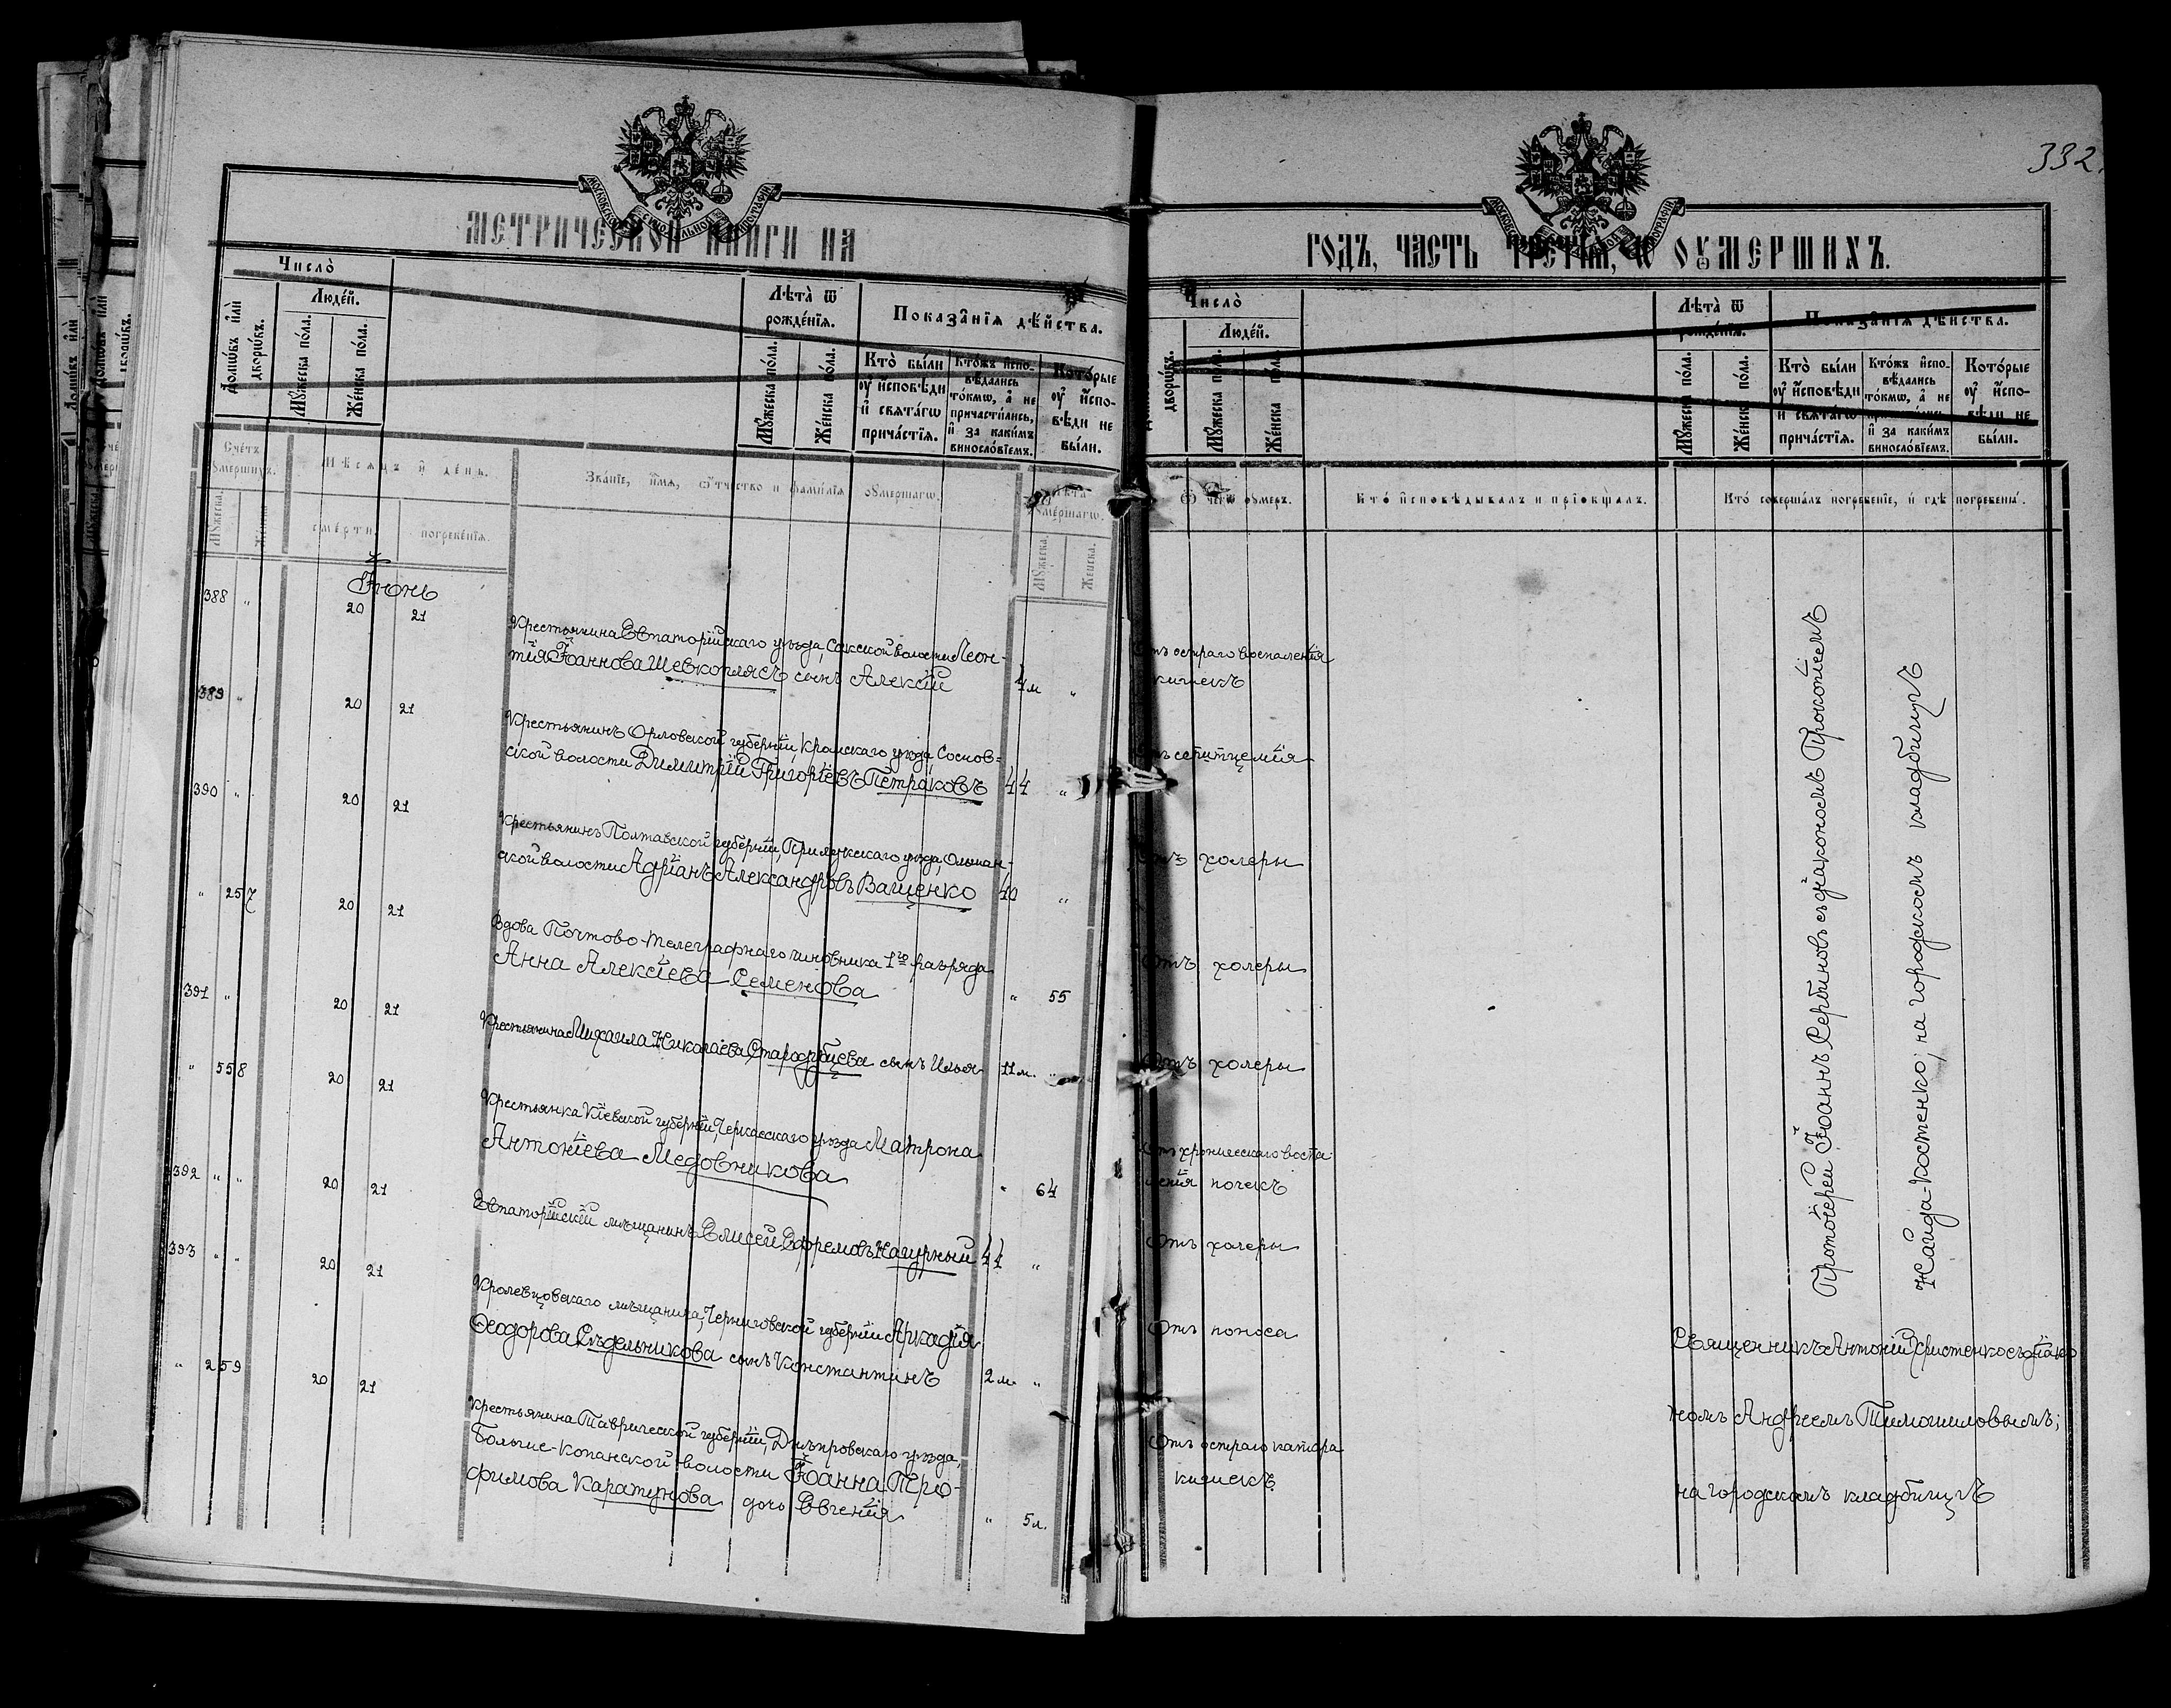 332.
МЕТРИЧЕСКОЙ КНИГИ НА
ГОДЪ, ЧАСТЬ ТРЕТІѦ, Ѡ ОУМЕРШИХЪ.
Число̀
Людéй.
Мꙋжеска по́ла.
Же́нска по́ла.
Лѣта̀ ѿ
рожде́нїѧ.
Мꙋжеска по́ла.
Же́нска по́ла.
Показа̑нїѧ дѣ́йства.
Кто̀ бы́ли
оу҆ и҆сповѣди
и҆ свѧта́гѡ
прича́стїѧ.
Кто́жъ и҆спо-
вѣдались
то́кмѡ, а҆ не
причасти́лись,
и҆ за каки́мъ
винослові́емъ.
Кото́рые
оу҆ и҆спо-
вѣди не
бы́ли.
Счётъ
ꙋмершихъ.
Мꙋжеска.
Мѣсѧцъ и҆ де́нь.
сме́рти
погребе́нїѧ.
Зва́нїе, и҆́мѧ, ѻ҆́тчество и фамилїѧ ꙋмершагѡ.
Лѣта
ꙋмершагѡ.
Мꙋжеска.
Женска.
Число̀
Людéй.
дворѡ́въ.
Мꙋжеска по́ла.
Же́нска по́ла.
Лѣта̀ ѿ
рожде́нїѧ.
Мꙋжеска по́ла.
Же́нска по́ла.
Показа̑нїѧ дѣ́йства.
Кто̀ бы́ли
оу҆ и҆сповѣди
и҆ свѧта́гѡ
прича́стїѧ.
Кто́жъ и҆спо-
вѣдались
то́кмѡ, а҆ не
и҆ за каки́мъ
винослові́емъ.
Кото́рые
оу҆ и҆спо-
вѣди не
бы́ли.
Ѿ чегѡ ꙋмеръ.
Кто и҆сповѣдывалъ и прїобщалъ.
Кто совершалъ погребенїе, и гдѣ погребены.
Іюнь
388 " 20 21
Крестьянина Евпаторійскаго уѣзда, Сакской волости Леон-
тія Іоаннова Шевкоплясъ сынъ Алексій 4 м "
Отъ остраго воспаленія
кишекъ
389 " 20 21
Крестьянинъ Орловской губерніи, Кромскаго уѣзда, Соснов-
ской волости Димитрій Григоріевъ Петраковъ 44 "
Отъ септицеміи
390 " 20 21
Крестьянинъ Полтавской губерніи, Прилукскаго уѣзда, Ольшан-
ской волости Адріанъ Александровъ Ващенко 40 "
Отъ холеры
" 257 20 21
Вдова Почтово-Телеграфнаго чиновника 1го разряда
Анна Алексіева Семенова " 55
Отъ холеры
391 " 20 21
Крестьянина Михаила Николаева Стародубцева сынъ Илья 11 м. "
Отъ холеры
" 558 20 21
Крестьянка Кіевской губерніи, Черкасскаго уѣзда Матрона
Антоніева Медовникова " 64
Отъ хроническаго воспа-
ленія почекъ
392 " " 20 21
Евпаторійскій мѣщанинъ Елисей Ефремовъ Нагурный 41 "
Отъ холеры
393 " " 20 21
Кролевцовскаго мѣщанина, Черниговской губерніи Аркадія
Ѳеодорова Сѣдельникова сынъ Константинъ 2 м. "
Отъ поноса
" 259 20 21
Крестьянина Таврической губерніи, Днѣпровскаго уѣзда,
Больше-Копанской волости Іоанна Тро-
фимова Каратунова дочь Евгенія " 5 л.
Отъ остраго катара
кишекъ
Протоіерей Іоаннъ Сербиновъ съ діакономъ Прокопіемъ
Найда-Костенко; на городскомъ кладбищѣ
Священникъ Антоній Христенко съ діако
номъ Андреемъ Тимошиловымъ;
на городскомъ кладбищѣ